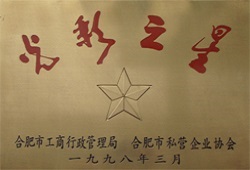 光彩之星
合肥市工商行政管理局 合肥市私营企业协会
一九九八年三月